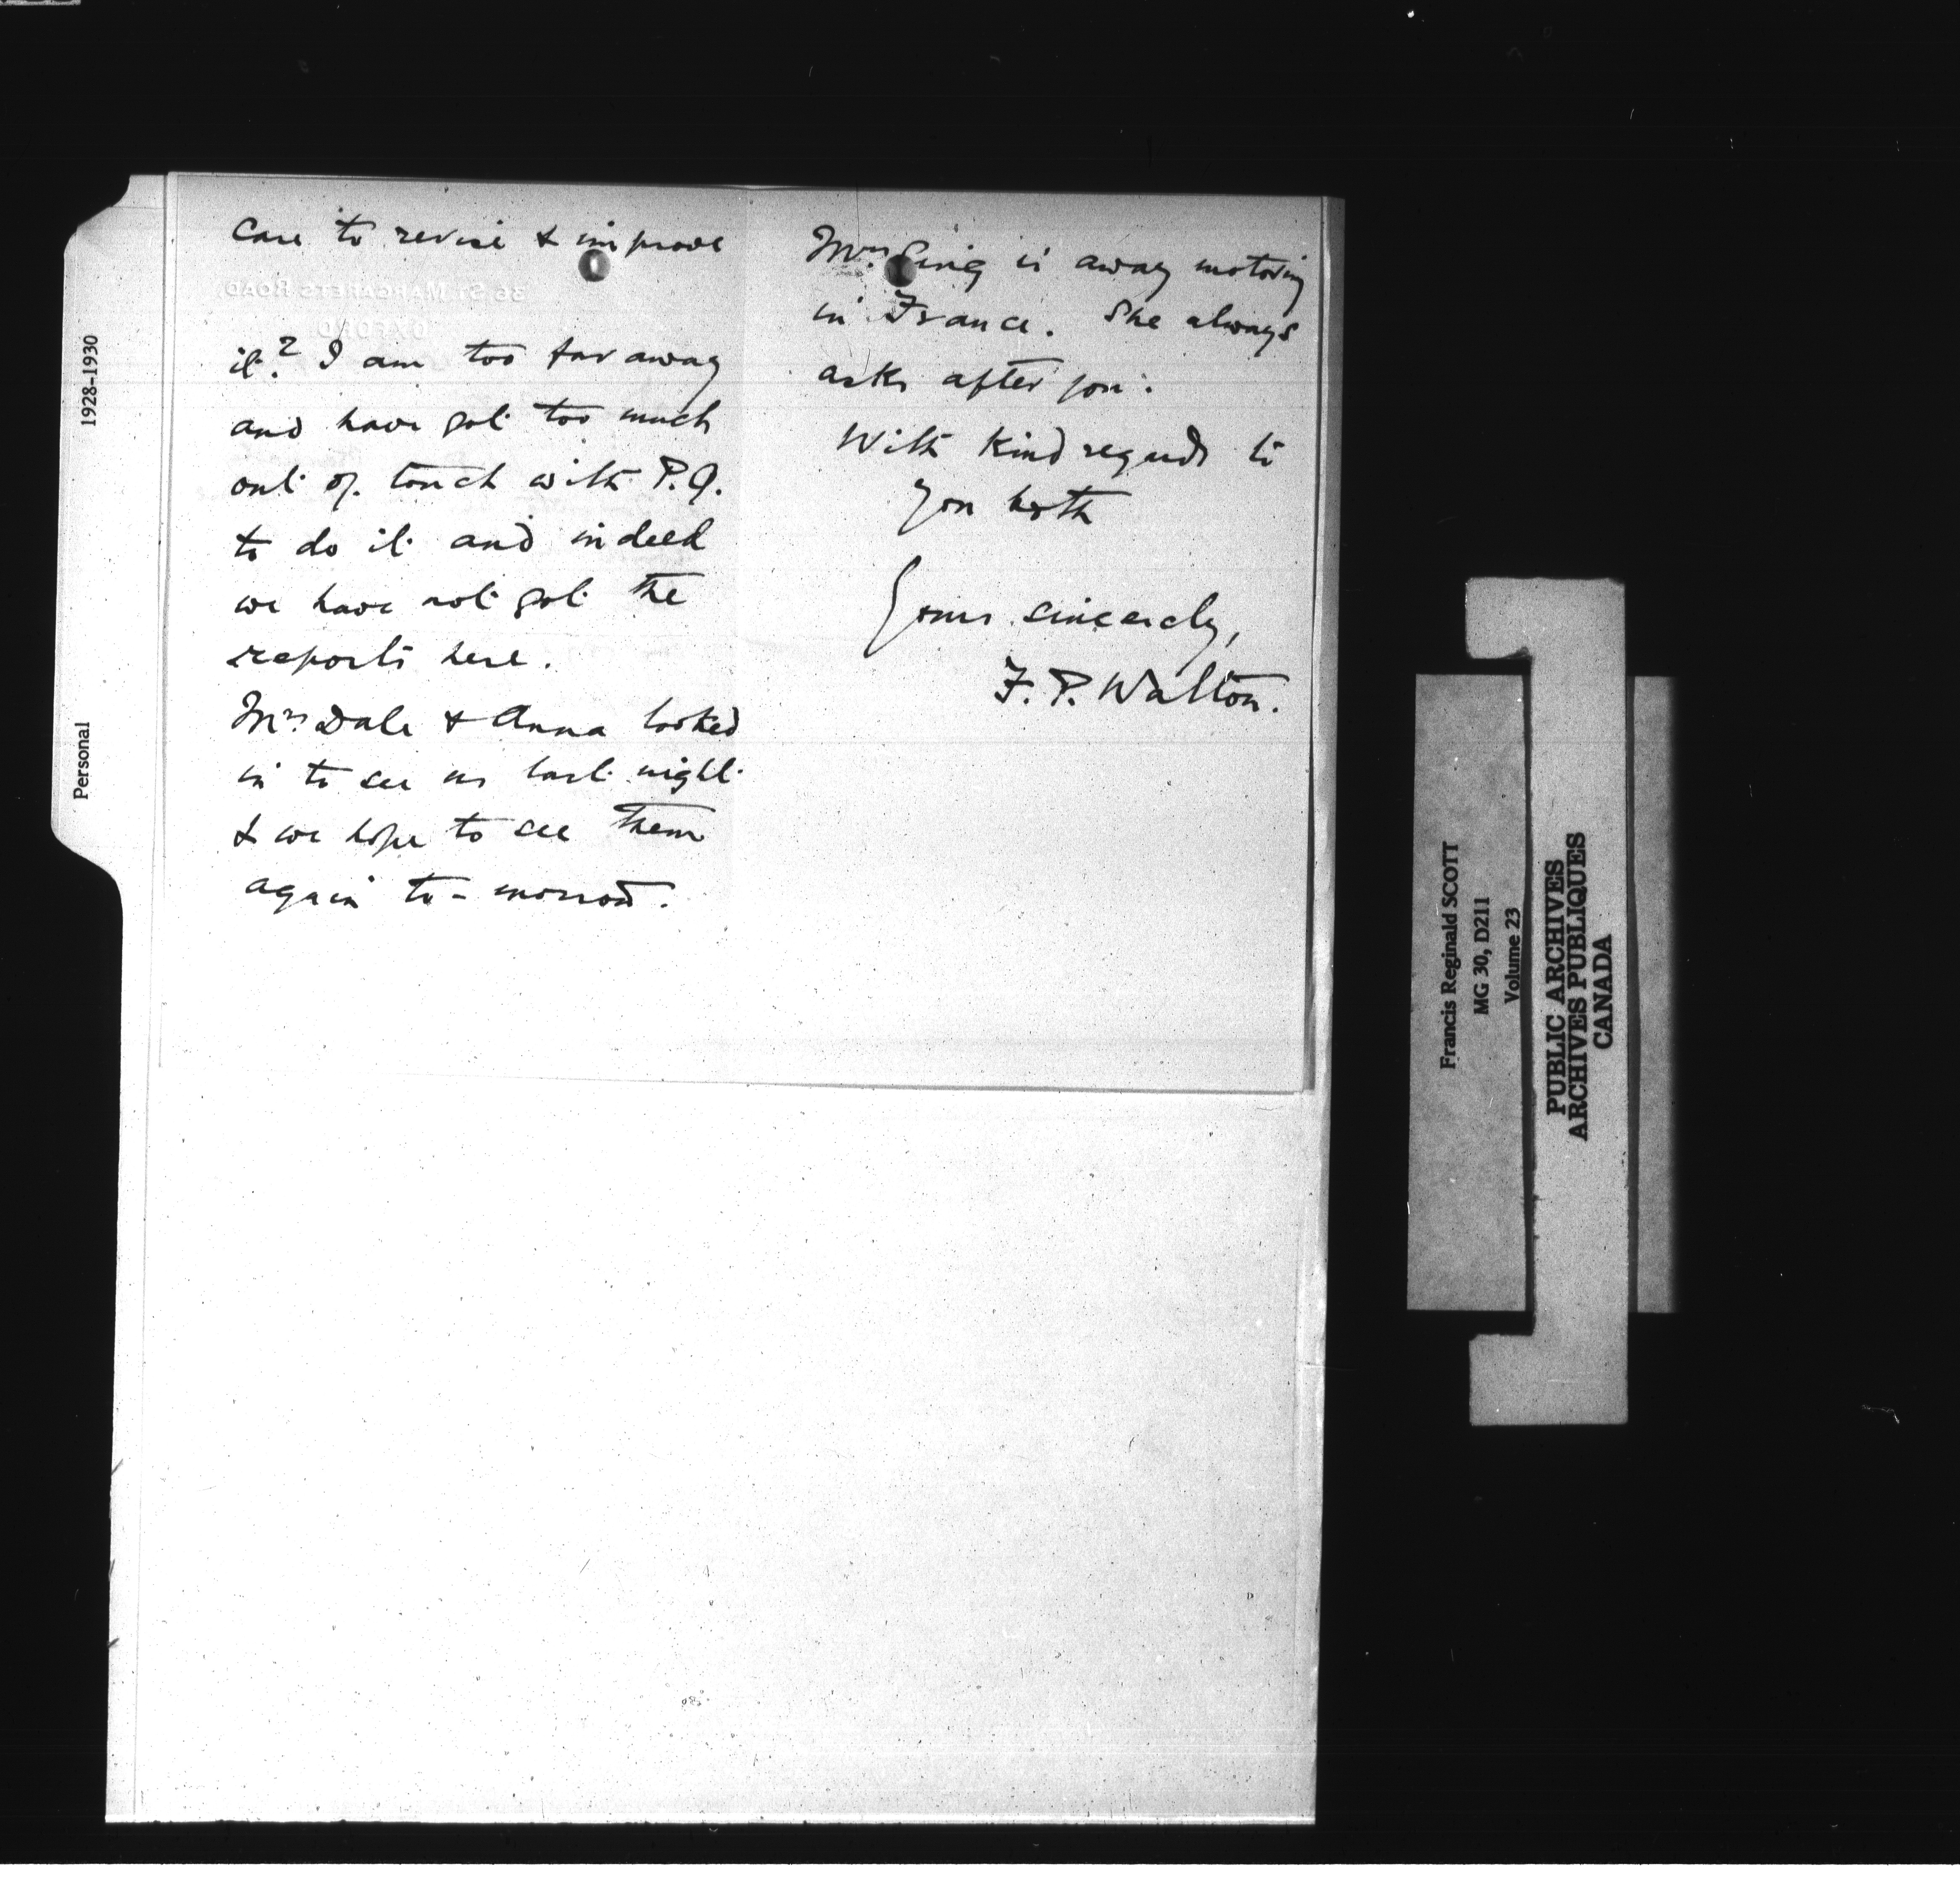 care to revise & improve
it? I am too far away
and have got too much
out of touch with P.Q.
to do it and indeed
we have not got the
reports here.
Mrs Dale & Anna looked
in to see us last night
& we hope to see them
again to-morrow.
Mrs is away motoring
in France. She always
asks after you.
With kind regards to
you both
Yours sincerely,
F. P. Walton.
36 ST MARGARETS ROAD,
OXFORD
1928-1930
Personal
Francis Reginald SCOTT
MG 30, D211
Volume 23
PUBLIC ARCHIVES
ARCHIVES PUBLIQUES
CANADA